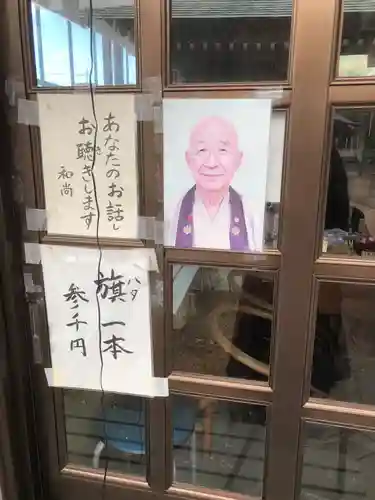 あなたのお話し
お聴きします
き
和尚
旗一本
ハタ
参千円